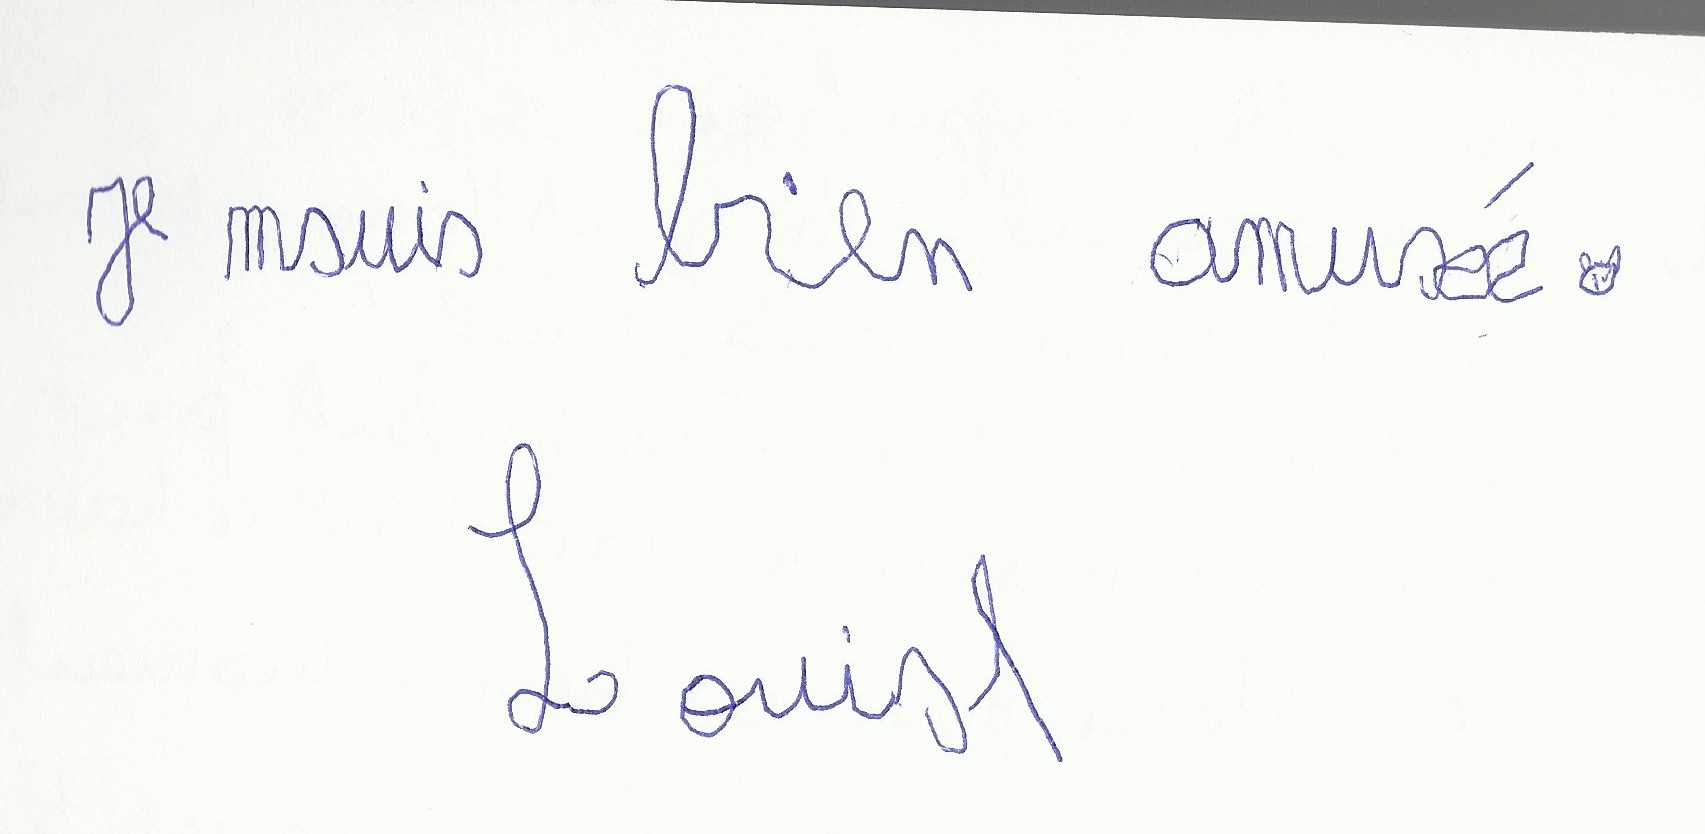 Je msuis bien amusée.
Louise